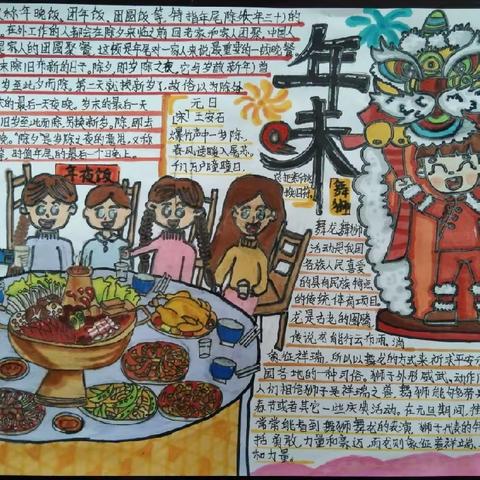 称年晚饭、团年饭、团圆饭等,特指年尾除夕(年三十)的
在外工作的人都会在除夕来临之前回老家和家人团聚,中国人
家人的团圆聚餐,这顿是年尾对一家人来说最重要的一顿晚餐
末除旧布新的日子。除夕,即岁除之夜,它与岁首(新年)首
岁至此夕而除,第二天就换新岁了,故俗以为除
的最后一天夜晚。岁末的最后一天
旧岁至此而除,另换新岁。除,即去
晚。"除夕"是岁除之夜的意思,又称
等,时值年尾的最后一个晚上。
元日
[宋] 王安石
爆竹声中一岁除,
春风送暖入屠苏。
千门万户曈曈日,
换旧符。
年末
舞狮
年夜饭
舞龙舞狮
活动是我国
各族人民喜爱
的具有民族特点
的传统体育项目
龙是古老的图腾
传说龙能行云布雨、消
象征祥瑞,所以以舞龙的方式来祈求平安
国各地的一种习俗。狮子外形威武,动作
人们相信狮子是祥瑞之兽,舞狮能够带
春节或者其它一些庆典活动。在元旦期间,
常常能看到舞狮舞龙的表演,狮子代表的
括勇敢、力量和
和力量。